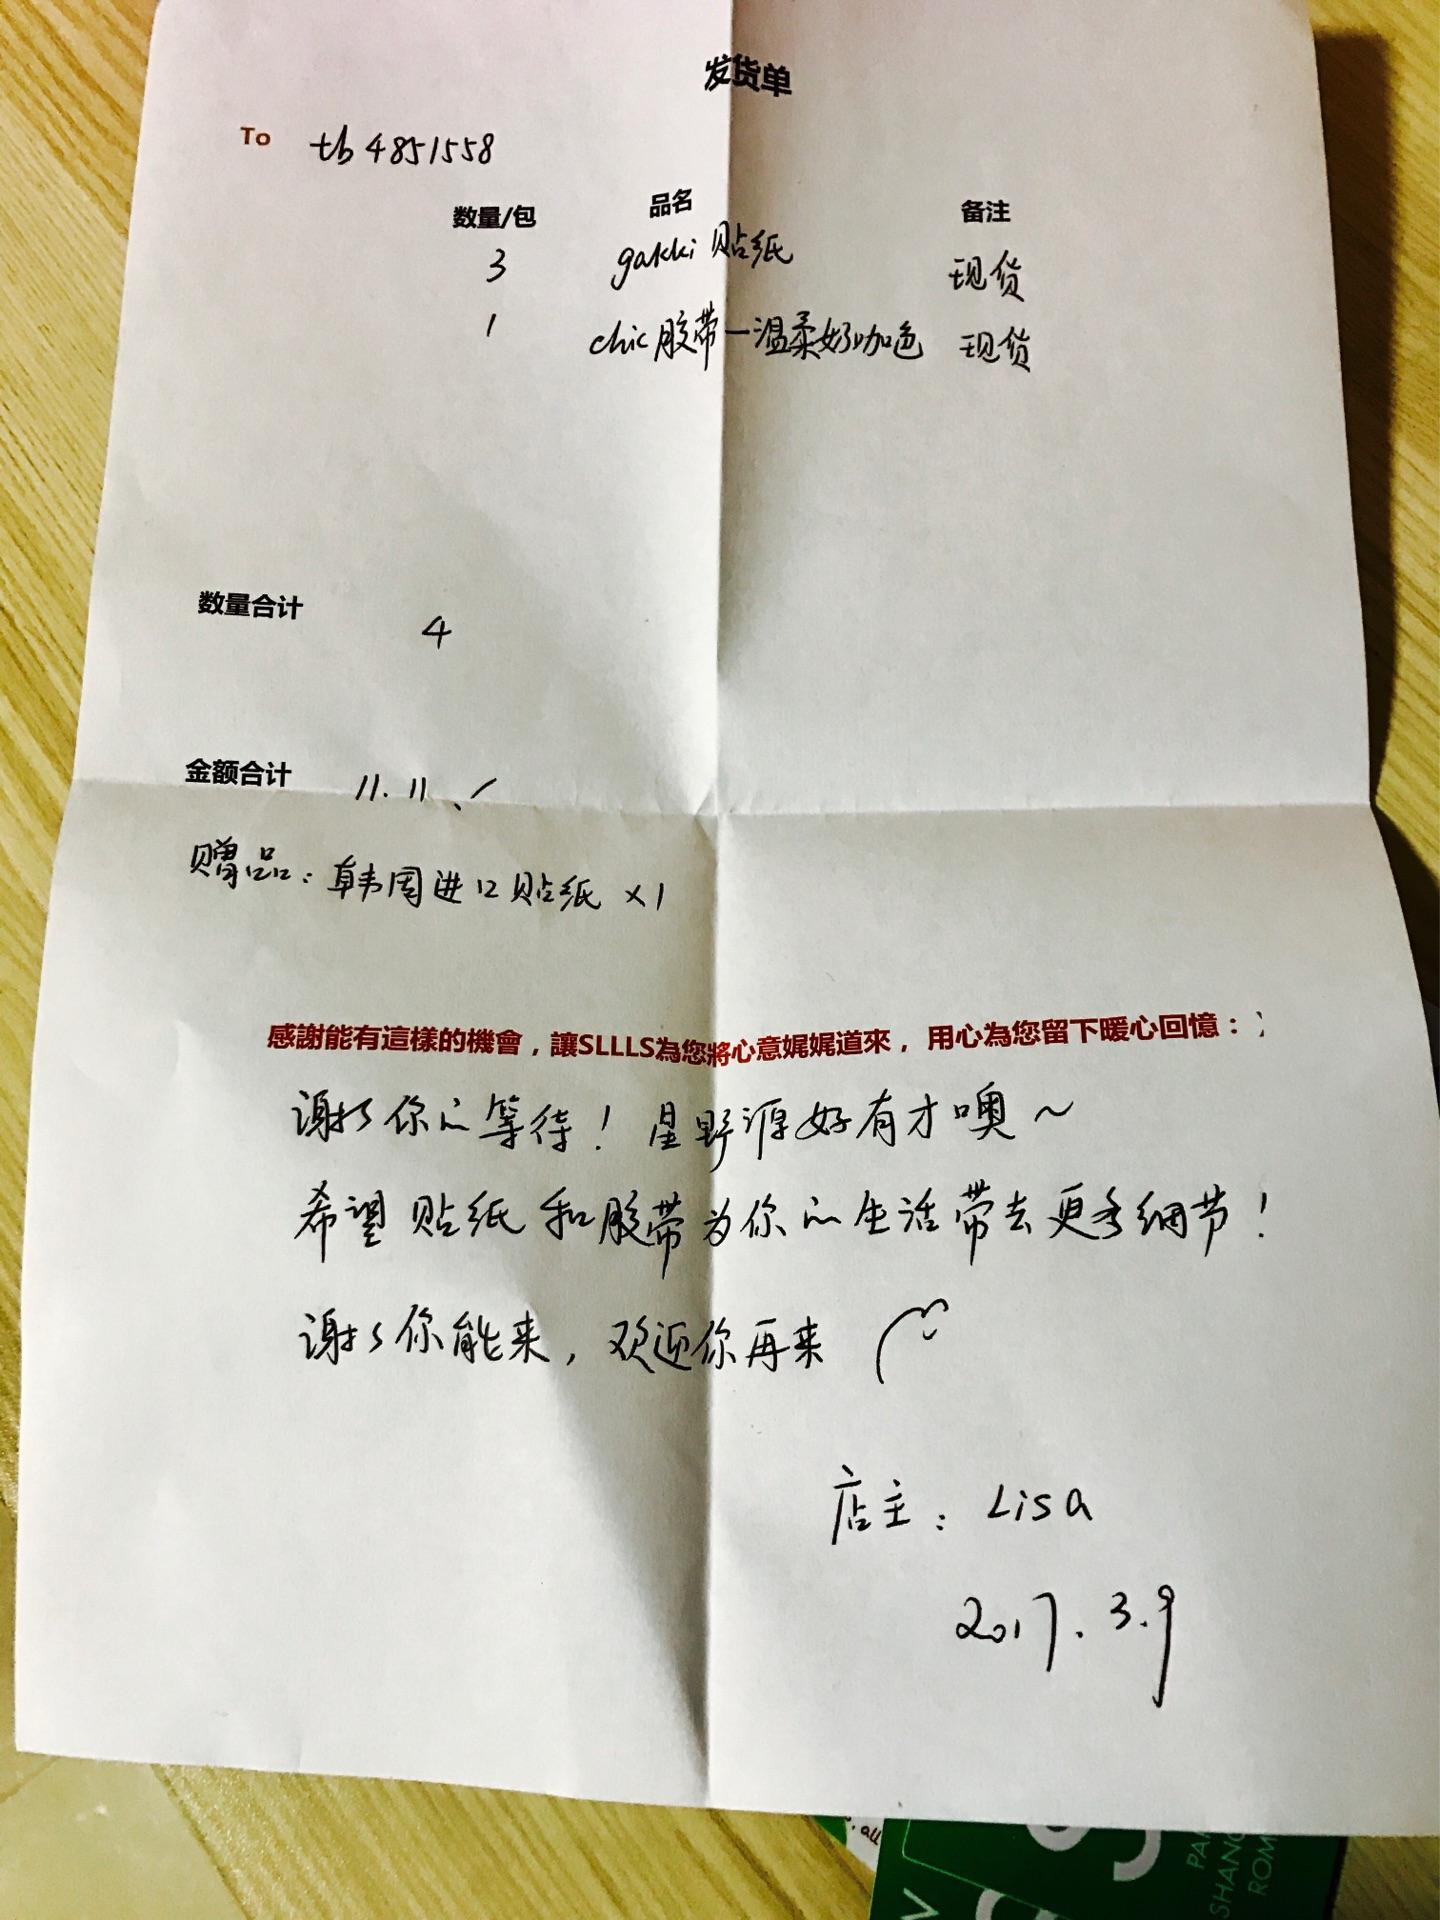 发货单
To tb4851558
数量/包 品名 备注
3 gakki 贴纸 现货
1 chic胶带—温柔好咖色 现货
数量合计 4
金额合计 11.11
赠品：韩国进口贴纸 ×1
感謝能有這樣的機會，讓SLLLS為您將心意娓娓道來，用心為您留下暖心回憶：）
谢谢你的等待！星野源好有才噢～
希望贴纸和胶带为你的生活带去更多细节！
谢谢你能来，欢迎你再来
店主：Lisa
2017.3.9
, all
PA
SHANG
ROM